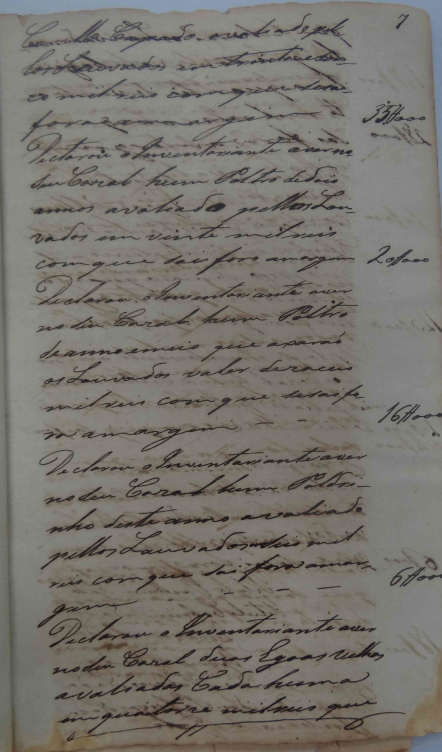 7
Cavallo Capado avaliado pe-
los Louvados em trinta e cin-
co mil reis com que sai
fora a margem 35#000
Declarou o Inventariante aver no
seu Cazal hum Poltro de dois
annos avaliado pellos Lou-
vados em vinte mil reis
com que sai fora amargem 20#000
Declarou o Inventariante aver
no seu Cazal hum Poltro
de anno emeio que axaraõ
os Louvados valer dezaceis
mil reis com que se sai fo-
ra amargem - - 16#000
Declarou o Inventariante aver
no seu Cazal hum Poldri-
nho deste anno avaliado
pellos Louvados seis mil
reis com que sai fora amar-
gem - - - 6#000
Declarou o Inventariante aver
no seu Cazal duas Egoas velhas
avaliadas Cada huma
em quatorze mil reis que